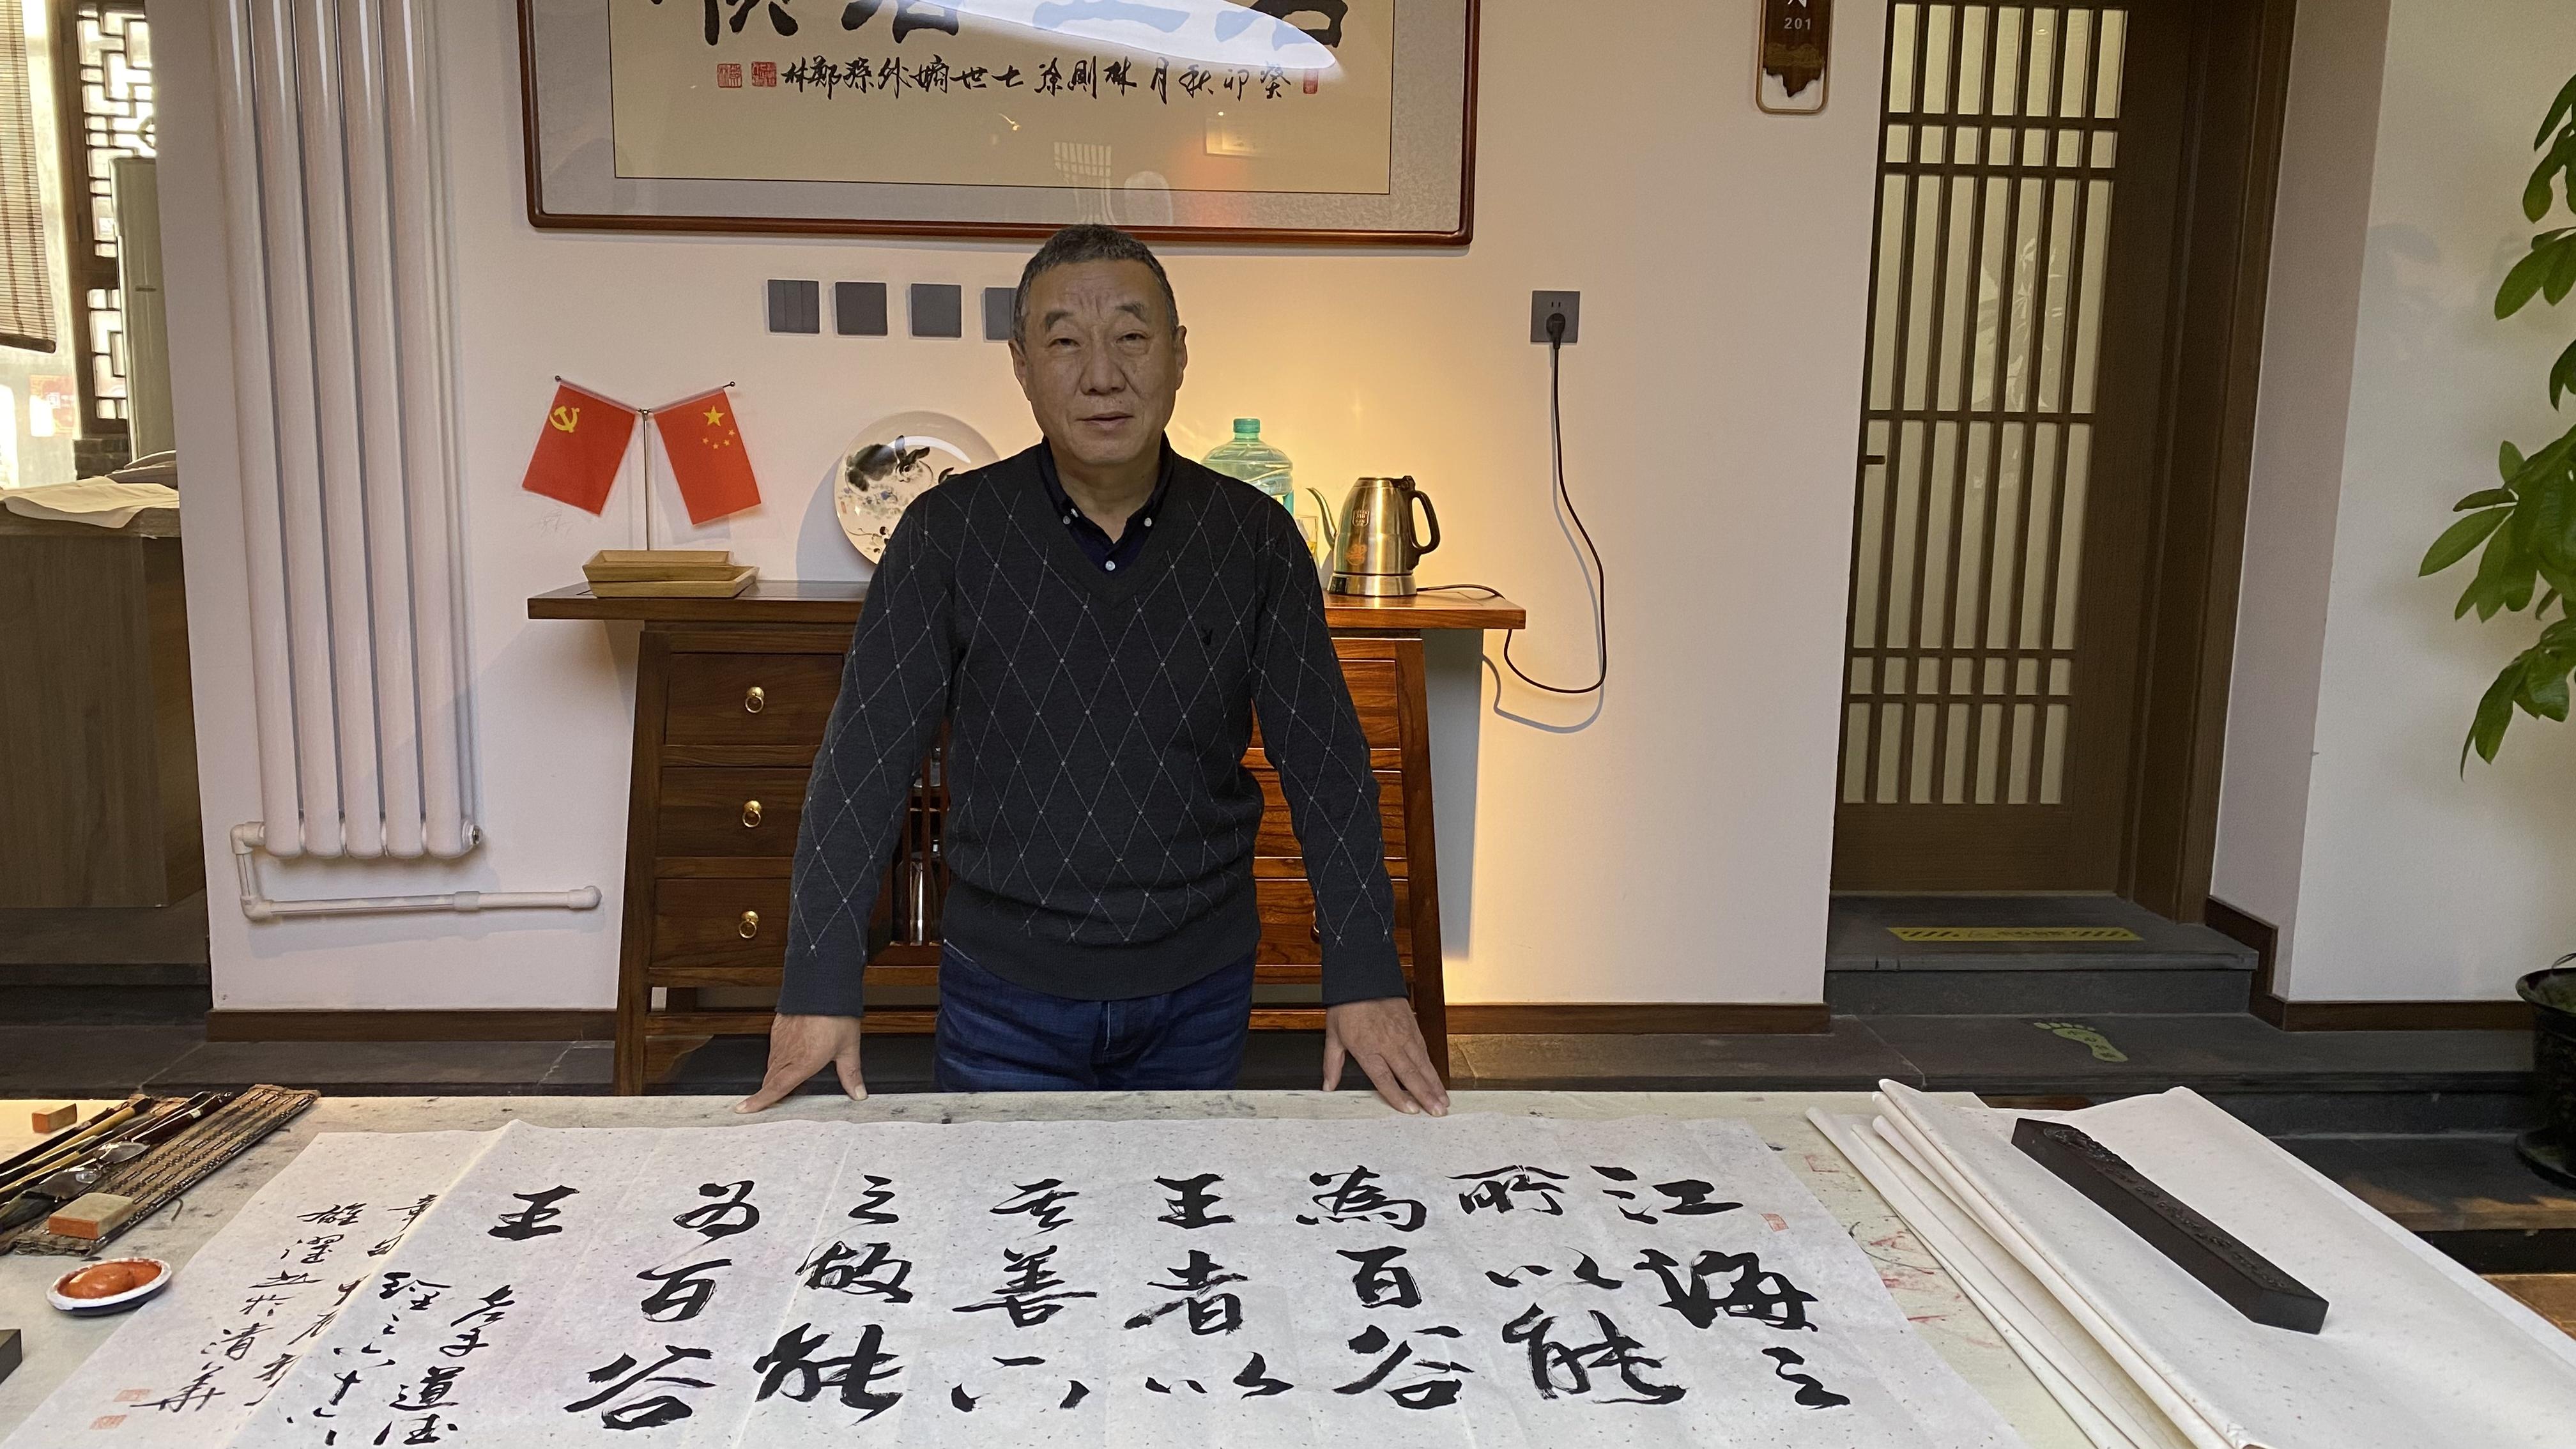 癸卯秋月林則徐七世嫡外孫鄭林
201
江海之
所以能
為百谷
王者以
其善下
之故能
为百谷
王
老子道德
经之六十六
章句
於清華